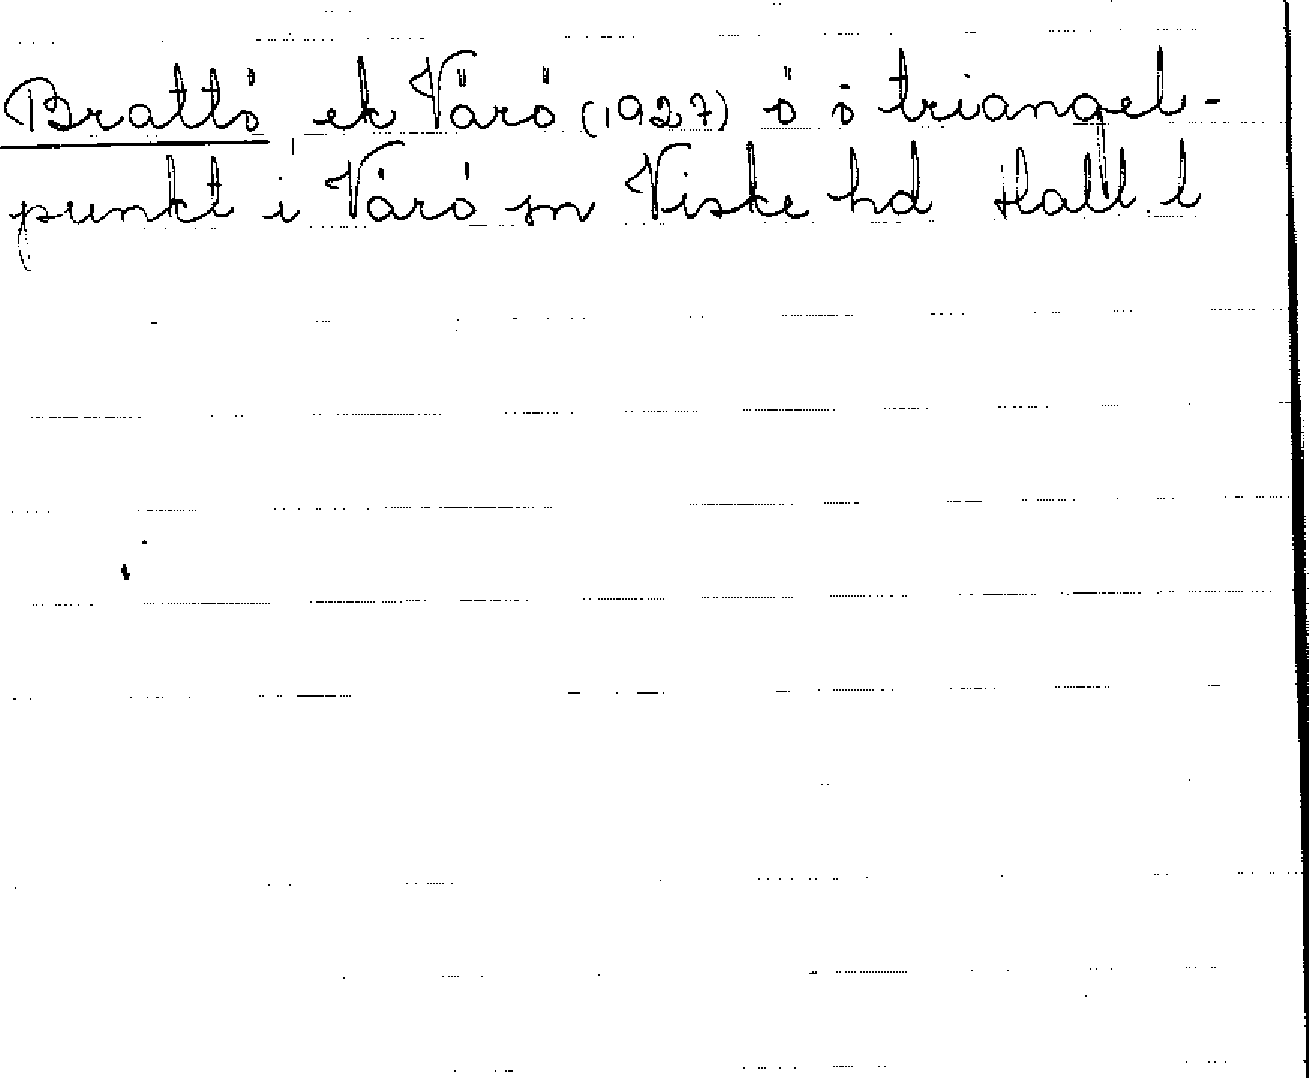 Brattö ek Värö (1927) ö ö triangel-
punkt i Värö sn Viske hd Hall. l